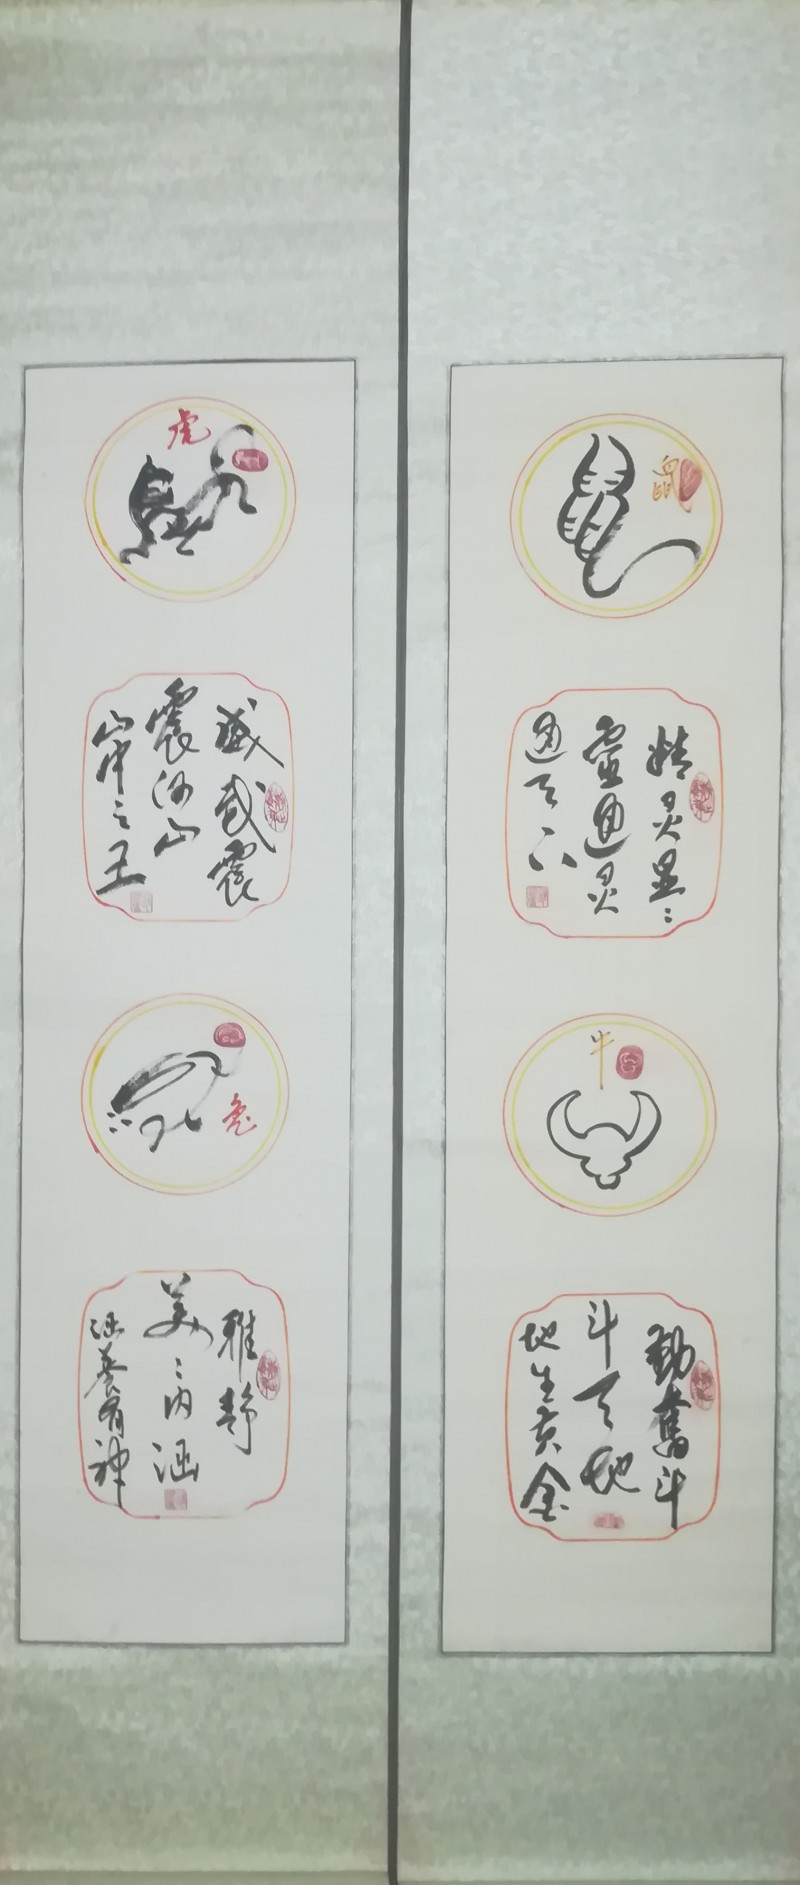 鼠
精灵显〻
灵通灵
通天下
牛
勤奋斗
斗天地
地生黄金
虎
威武震
震河山
山中之王
兔
雅静
美〻内涵
涵养有神